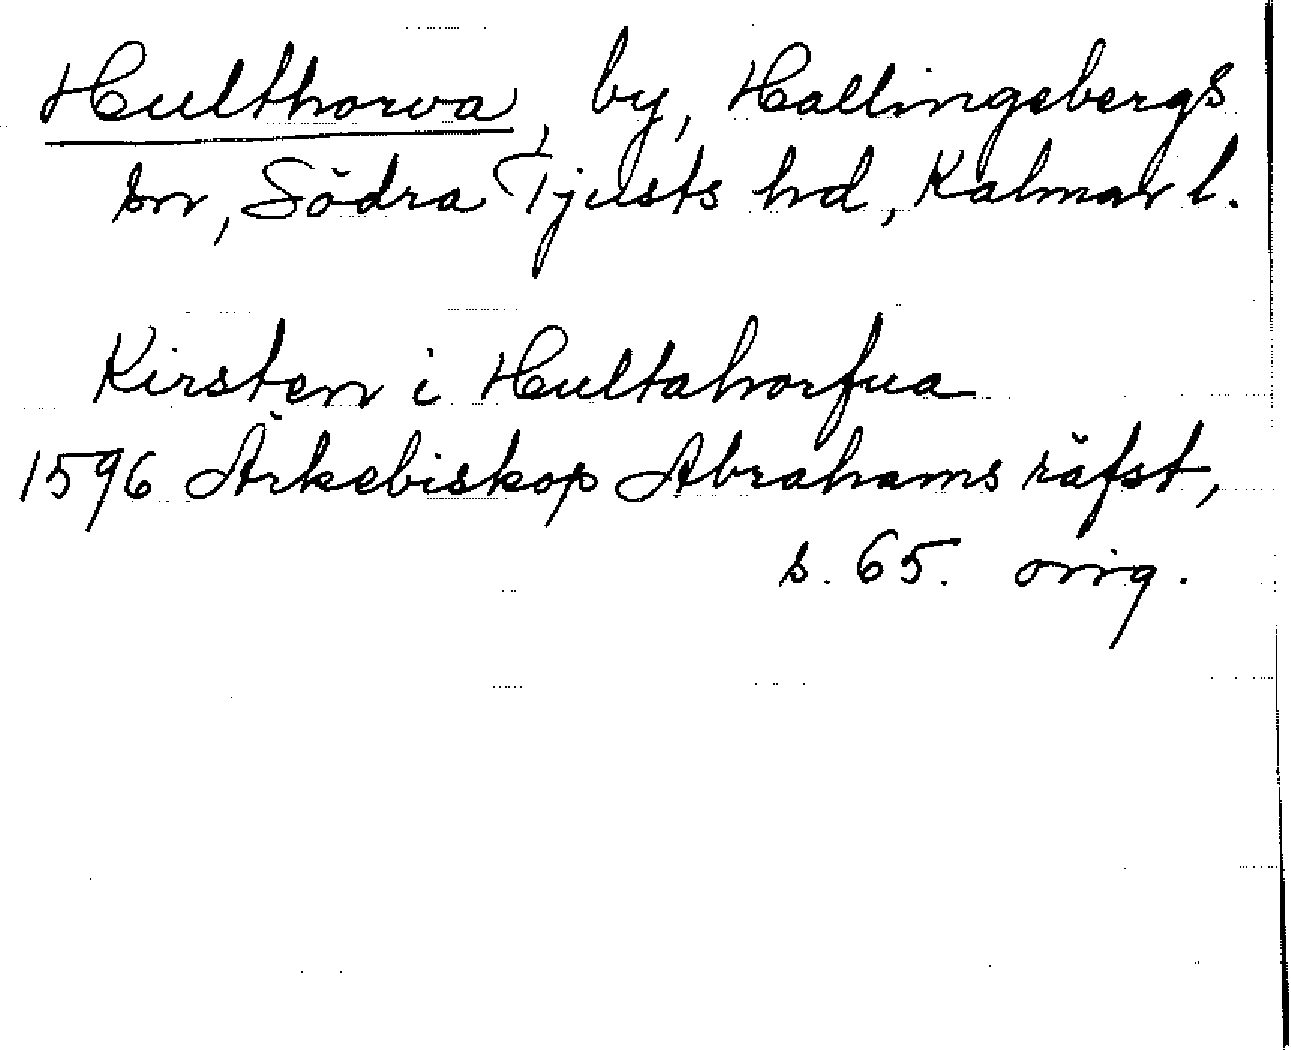 Hulthorva, by, Hallingebergs
sn, Södra Tjusts hd, Kalmar l.
Kirsten i Hultahorfua
1596 Ärkebiskop Abrahams räfst,
s. 65. orig.